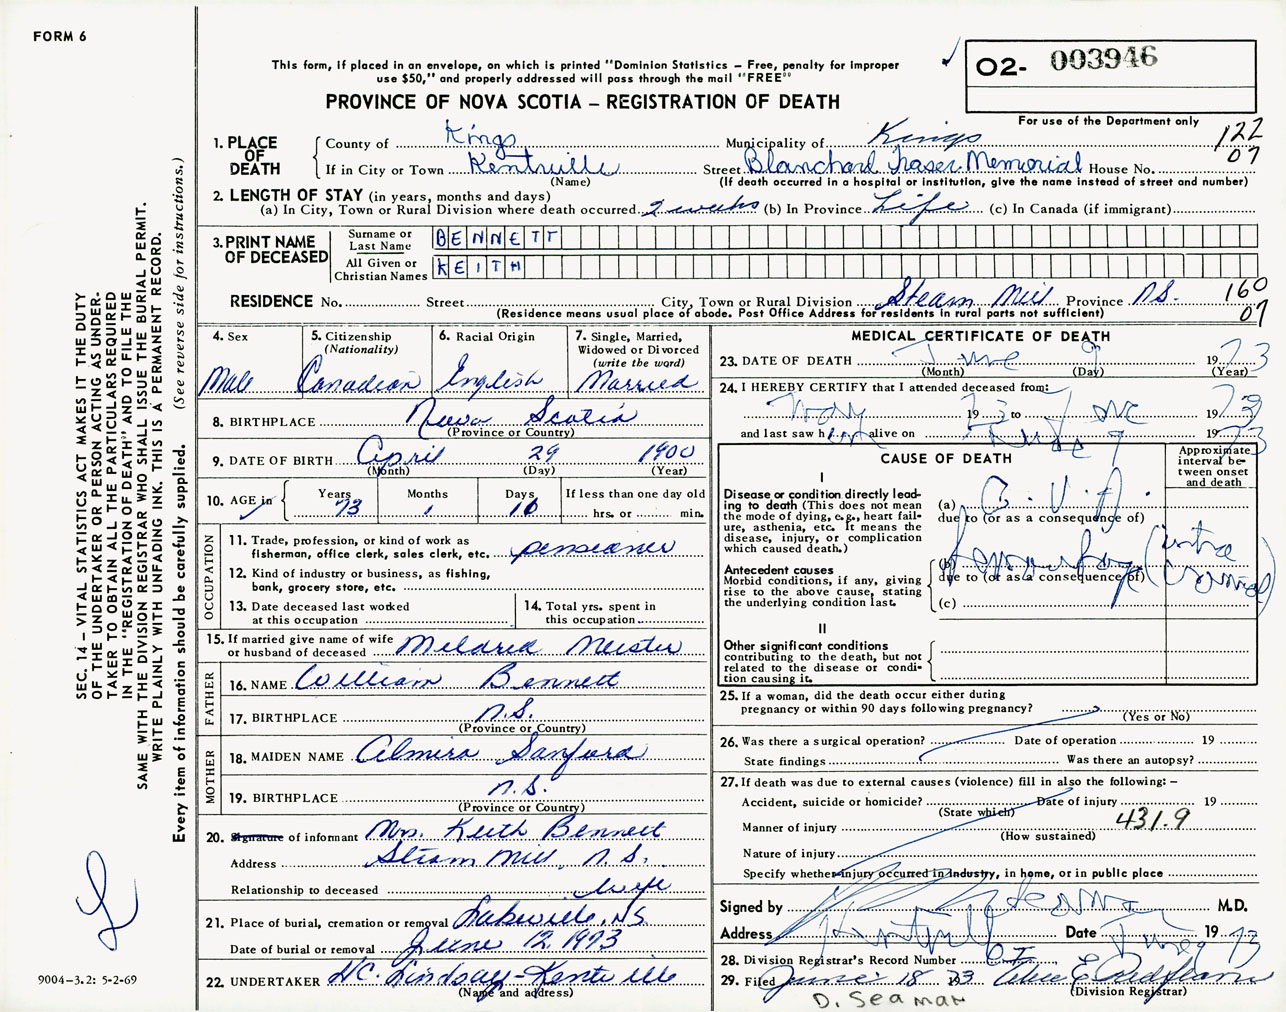 FORM 6
This form, if placed in an envelope, on which is printed "Dominion Statistics – Free, penalty for improper
use $50," and properly addressed will pass through the mail "FREE"
PROVINCE OF NOVA SCOTIA – REGISTRATION OF DEATH
02- 003946
For use of the Department only
122
07
1. PLACE OF DEATH
County of Kings Municipality of Kings
If in City or Town Kentville Street Blanchard Fraser Memorial House No.
(Name) (If death occurred in a hospital or institution, give the name instead of street and number)
2. LENGTH OF STAY (in years, months and days)
(a) In City, Town or Rural Division where death occurred 2 weeks (b) In Province Life (c) In Canada (if immigrant)
3. PRINT NAME OF DECEASED
Surname or Last Name BENNETT
All Given or Christian Names KEITH
RESIDENCE No. Street City, Town or Rural Division Steam Mill Province N.S. 160
(Residence means usual place of abode. Post Office Address for residents in rural parts not sufficient) 07
4. Sex Male
5. Citizenship (Nationality) Canadian
6. Racial Origin English
7. Single, Married, Widowed or Divorced (write the word) Married
8. BIRTHPLACE Nova Scotia
(Province or Country)
9. DATE OF BIRTH April 29 1900
(Month) (Day) (Year)
10. AGE in Years 73 Months 1 Days If less than one day old
hrs. or min.
OCCUPATION
11. Trade, profession, or kind of work as
fisherman, office clerk, sales clerk, etc. pensioner
12. Kind of industry or business, as fishing,
bank, grocery store, etc.
13. Date deceased last worked
at this occupation
14. Total yrs. spent in
this occupation
15. If married give name of wife
or husband of deceased Mildred Meister
FATHER
16. NAME William Bennett
17. BIRTHPLACE N.S.
(Province or Country)
MOTHER
18. MAIDEN NAME Almira Sanford
19. BIRTHPLACE N.S.
(Province or Country)
20. Signature of informant Mrs. Keith Bennett
Address Steam Mill, N.S.
Relationship to deceased Wife
21. Place of burial, cremation or removal Lakeville, N.S.
Date of burial or removal June 12, 1973
22. UNDERTAKER Lindsay - Kentville
(Name and address)
MEDICAL CERTIFICATE OF DEATH
23. DATE OF DEATH June 9 1973
(Month) (Day) (Year)
24. I HEREBY CERTIFY that I attended deceased from:
May 1973 to June 1973
and last saw him alive on June 9 1973
CAUSE OF DEATH
Approximate interval between onset and death
I
Disease or condition directly lead-
ing to death (This does not mean
the mode of dying, e.g., heart fail-
ure, asthenia, etc. It means the
disease, injury, or complication
which caused death.)
(a) C.V.A.
due to (or as a consequence of)
Antecedent causes
Morbid conditions, if any, giving
rise to the above cause, stating
the underlying condition last.
(b) Hemorrhage (intra
due to (or as a consequence of)
cranial)
(c)
II
Other significant conditions
contributing to the death, but not
related to the disease or condi-
tion causing it.
25. If a woman, did the death occur either during
pregnancy or within 90 days following pregnancy?
(Yes or No)
26. Was there a surgical operation? Date of operation 19
State findings Was there an autopsy?
27. If death was due to external causes (violence) fill in also the following: –
Accident, suicide or homicide? Date of injury 19
(State which)
Manner of injury 431.9
(How sustained)
Nature of injury
Specify whether injury occurred in industry, in home, or in public place
Signed by M.D.
Address Kentville Date June 9 1973
28. Division Registrar's Record Number
29. Filed June 18 73
(Division Registrar)
D. Seaman
SEC. 14 – VITAL STATISTICS ACT MAKES IT THE DUTY
OF THE UNDERTAKER OR PERSON ACTING AS UNDER-
TAKER TO OBTAIN ALL THE PARTICULARS REQUIRED
IN THE "REGISTRATION OF DEATH" AND TO FILE THE
SAME WITH THE DIVISION REGISTRAR WHO SHALL ISSUE THE BURIAL PERMIT.
WRITE PLAINLY WITH UNFADING INK. THIS IS A PERMANENT RECORD.
Every item of information should be carefully supplied. (See reverse side for instructions.)
9004–3.2: 5-2-69